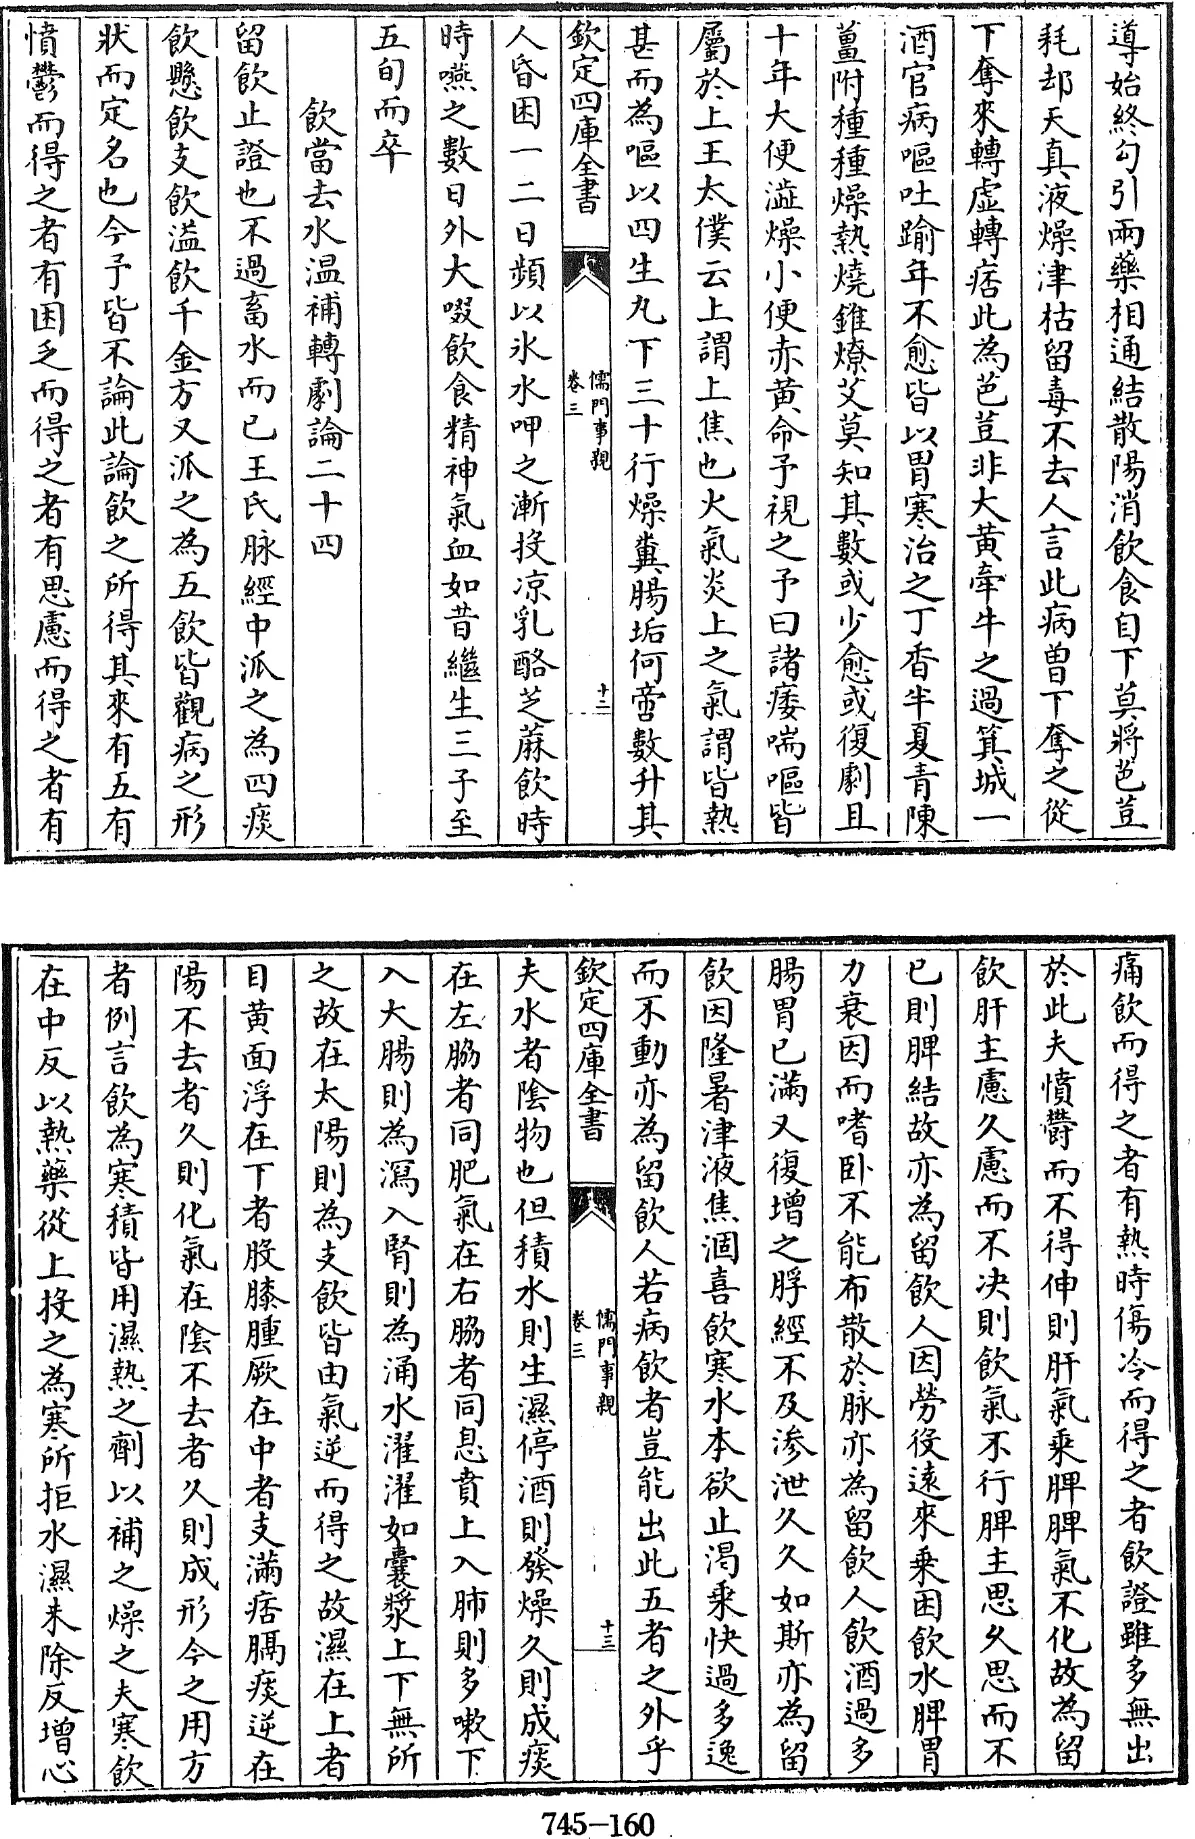 導始終勾引兩藥相通結散陽消飲食自下莫將芭荳
耗却天真液燥津枯留毒不去人言此病曾下奪之從
下奪來轉虛轉痞此為芭荳非大黃牽牛之過箕城一
酒官病嘔吐踰年不愈皆以胃寒治之丁香半夏青陳
薑附種種燥熱燒錐燎艾莫知其數或少愈或復劇且
十年大便澁燥小便赤黃命予視之予曰諸痿喘嘔皆
屬於上王太僕云上謂上焦也火氣炎上之氣謂皆熱
甚而為嘔以四生丸下三十行燥糞腸垢何啻數升其
欽定四庫全書
儒門事親
卷三
十二
人昏困一二日頻以氷水呷之漸投凉乳酪芝蔴飲時
時嚥之數日外大啜飲食精神氣血如昔繼生三子至
五旬而卒
飲當去水温補轉劇論二十四
留飲止證也不過畜水而已王氏脉經中派之為四痰
飲懸飲支飲溢飲千金方又派之為五飲皆觀病之形
狀而定名也今予皆不論此論飲之所得其來有五有
憤鬱而得之者有困乏而得之者有思慮而得之者有
痛飲而得之者有熱時傷冷而得之者飲證雖多無出
於此夫憤鬱而不得伸則肝氣乘脾脾氣不化故為留
飲肝主慮久慮而不決則飲氣不行脾主思久思而不
已則脾結故亦為留飲人因勞役遠來乗困飲水脾胃
力衰因而嗜卧不能布散於脉亦為留飲人飲酒過多
腸胃已滿又復增之脬經不及滲泄久久如斯亦為留
飲因隆暑津液焦涸喜飲寒水本欲止渴乘快過多逸
而不動亦為留飲人若病飲者豈能出此五者之外乎
欽定四庫全書
儒門事親
卷三
十三
夫水者陰物也但積水則生濕停酒則發燥久則成痰
在左脇者同肥氣在右脇者同息賁上入肺則多嗽下
入大腸則為瀉入腎則為涌水濯濯如囊漿上下無所
之故在太陽則為支飲皆由氣逆而得之故濕在上者
目黃面浮在下者股膝腫厥在中者支滿痞膈痰逆在
陽不去者久則化氣在陰不去者久則成形今之用方
者例言飲為寒積皆用濕熱之劑以補之燥之夫寒飲
在中反以熱藥從上投之為寒所拒水濕未除反增心
745-160